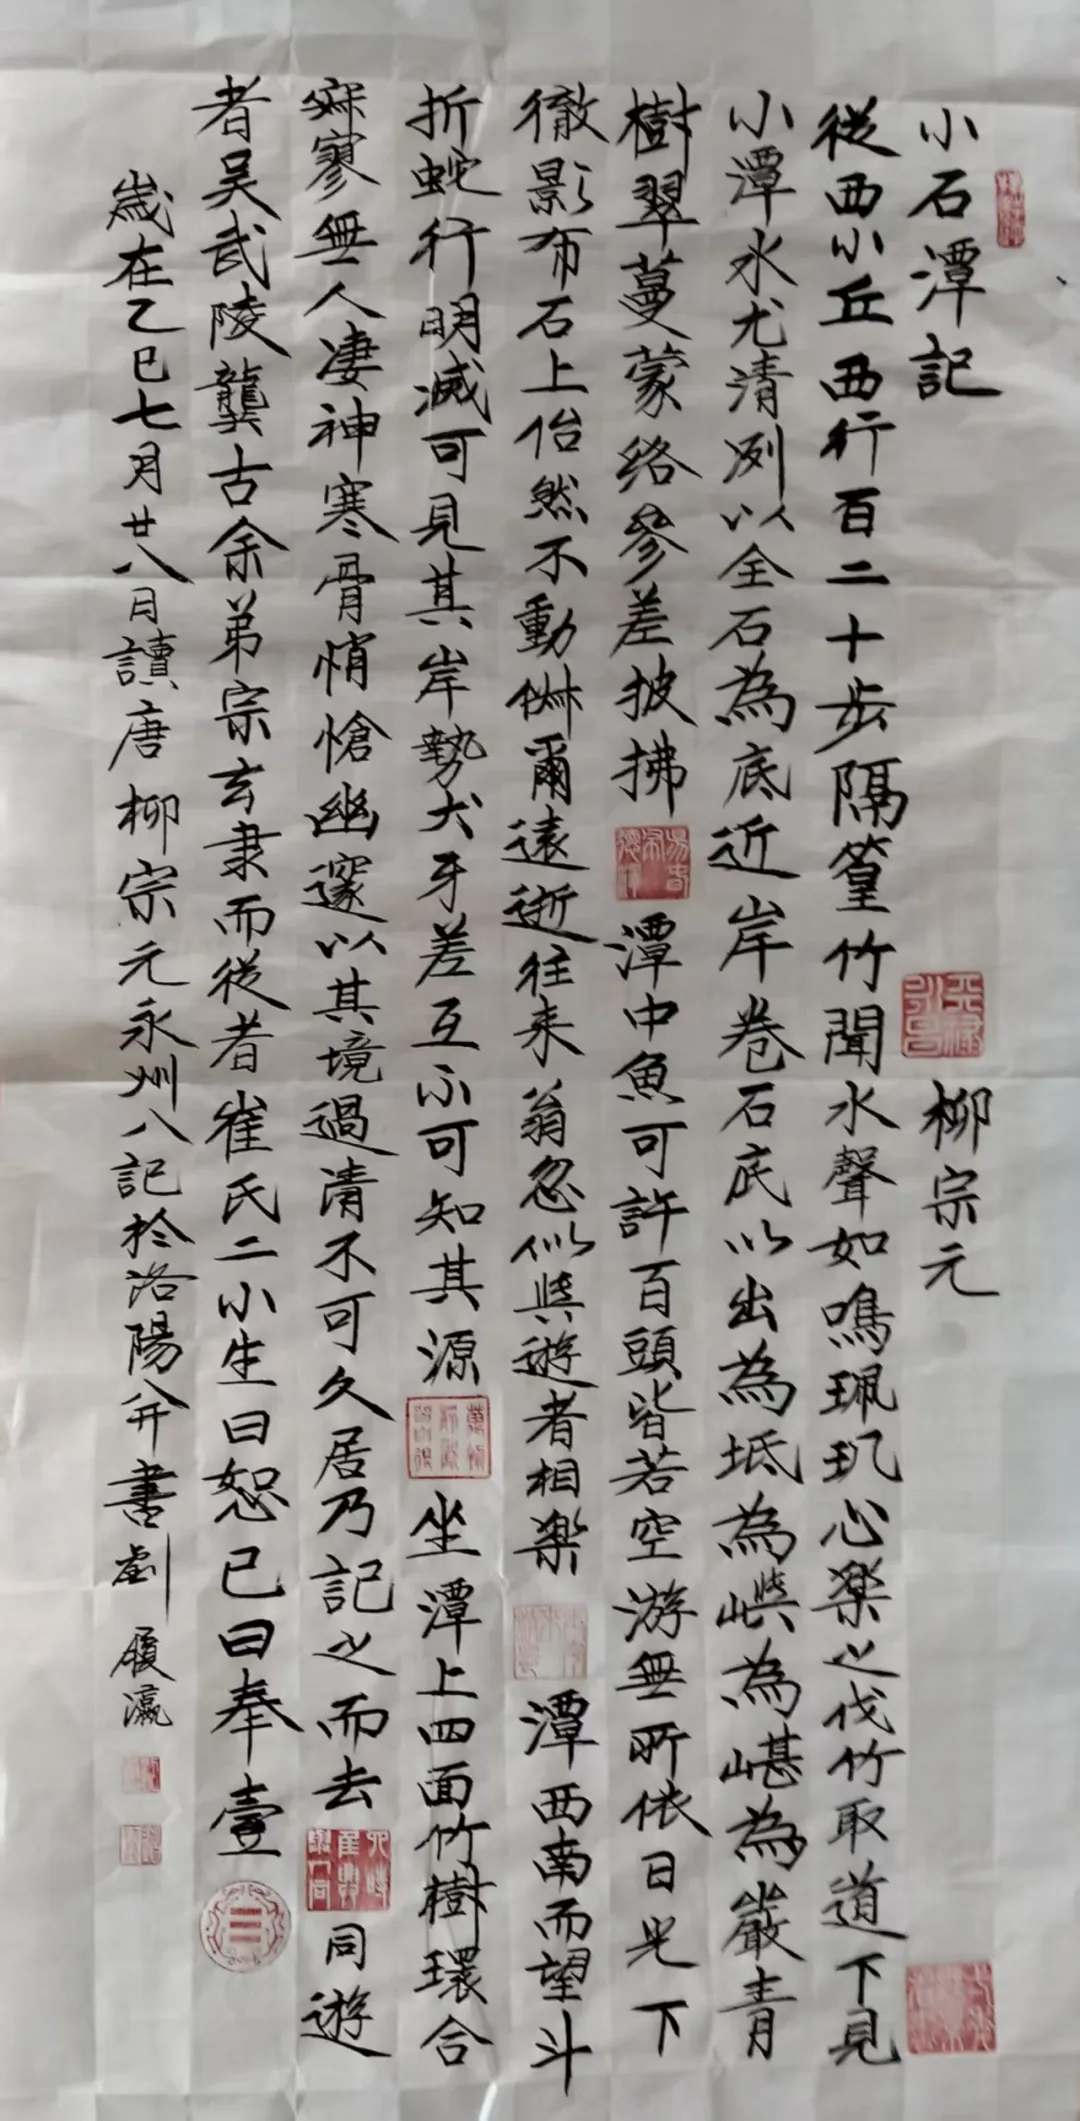 小石潭記 柳宗元
從西小丘西行百二十步隔篁竹聞水聲如鳴珮玑心樂之伐竹取道下見
小潭水尤清冽以全石為底近岸卷石底以出為坻為嶼為嵁為巖青
樹翠蔓蒙络參差披拂 潭中魚可許百頭皆若空游無所依日光下
徹影布石上佁然不動俶爾遠逝往来翁忽似與遊者相樂 潭西南而望斗
折蛇行明滅可見其岸勢犬牙差互不可知其源 坐潭上四面竹樹環合
寂寥無人凄神寒骨悄愴幽邃以其境過清不可久居乃記之而去 同遊
者吴武陵龔古余弟宗玄隶而從者崔氏二小生曰恕己曰奉壹
歲在乙巳七月廿八日讀唐柳宗元永州八記於洛陽并書劉履瀛